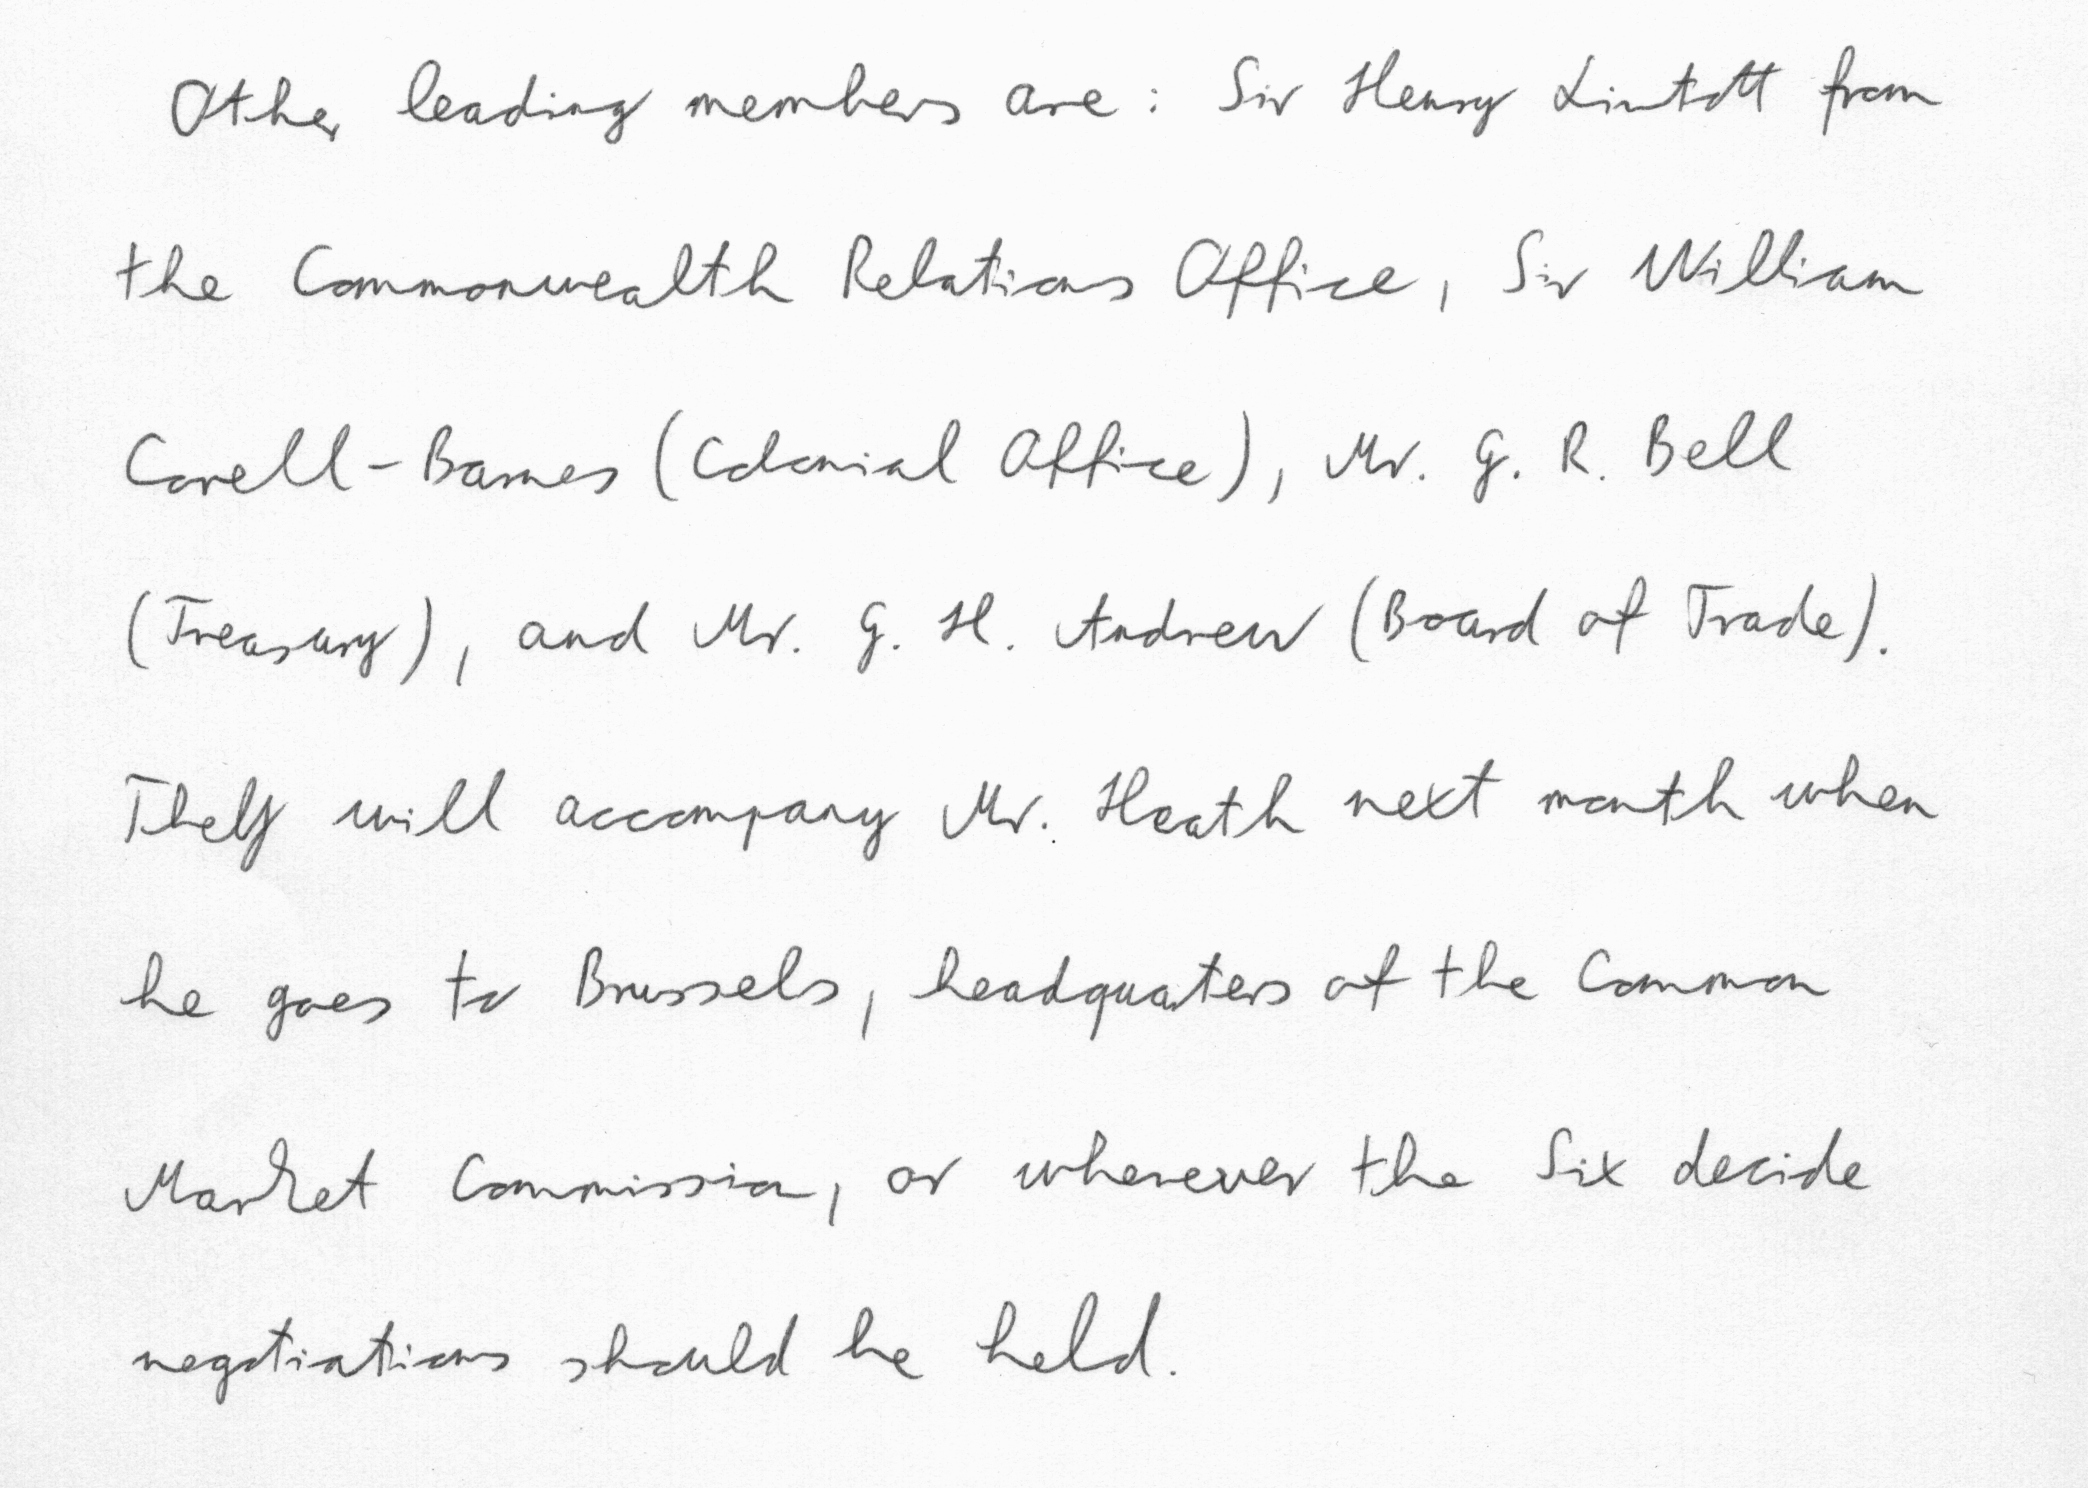 Other leading members are: Sir Henry Lintott from
the Commonwealth Relations Office, Sir William
Gorell-Barnes (Colonial Office), Mr. G. R. Bell
(Treasury), and Mr. G. H. Andrew (Board of Trade).
They will accompany Mr. Heath next month when
he goes to Brussels, headquarters of the Common
Market Commission, or wherever the Six decide
negotiations should be held.